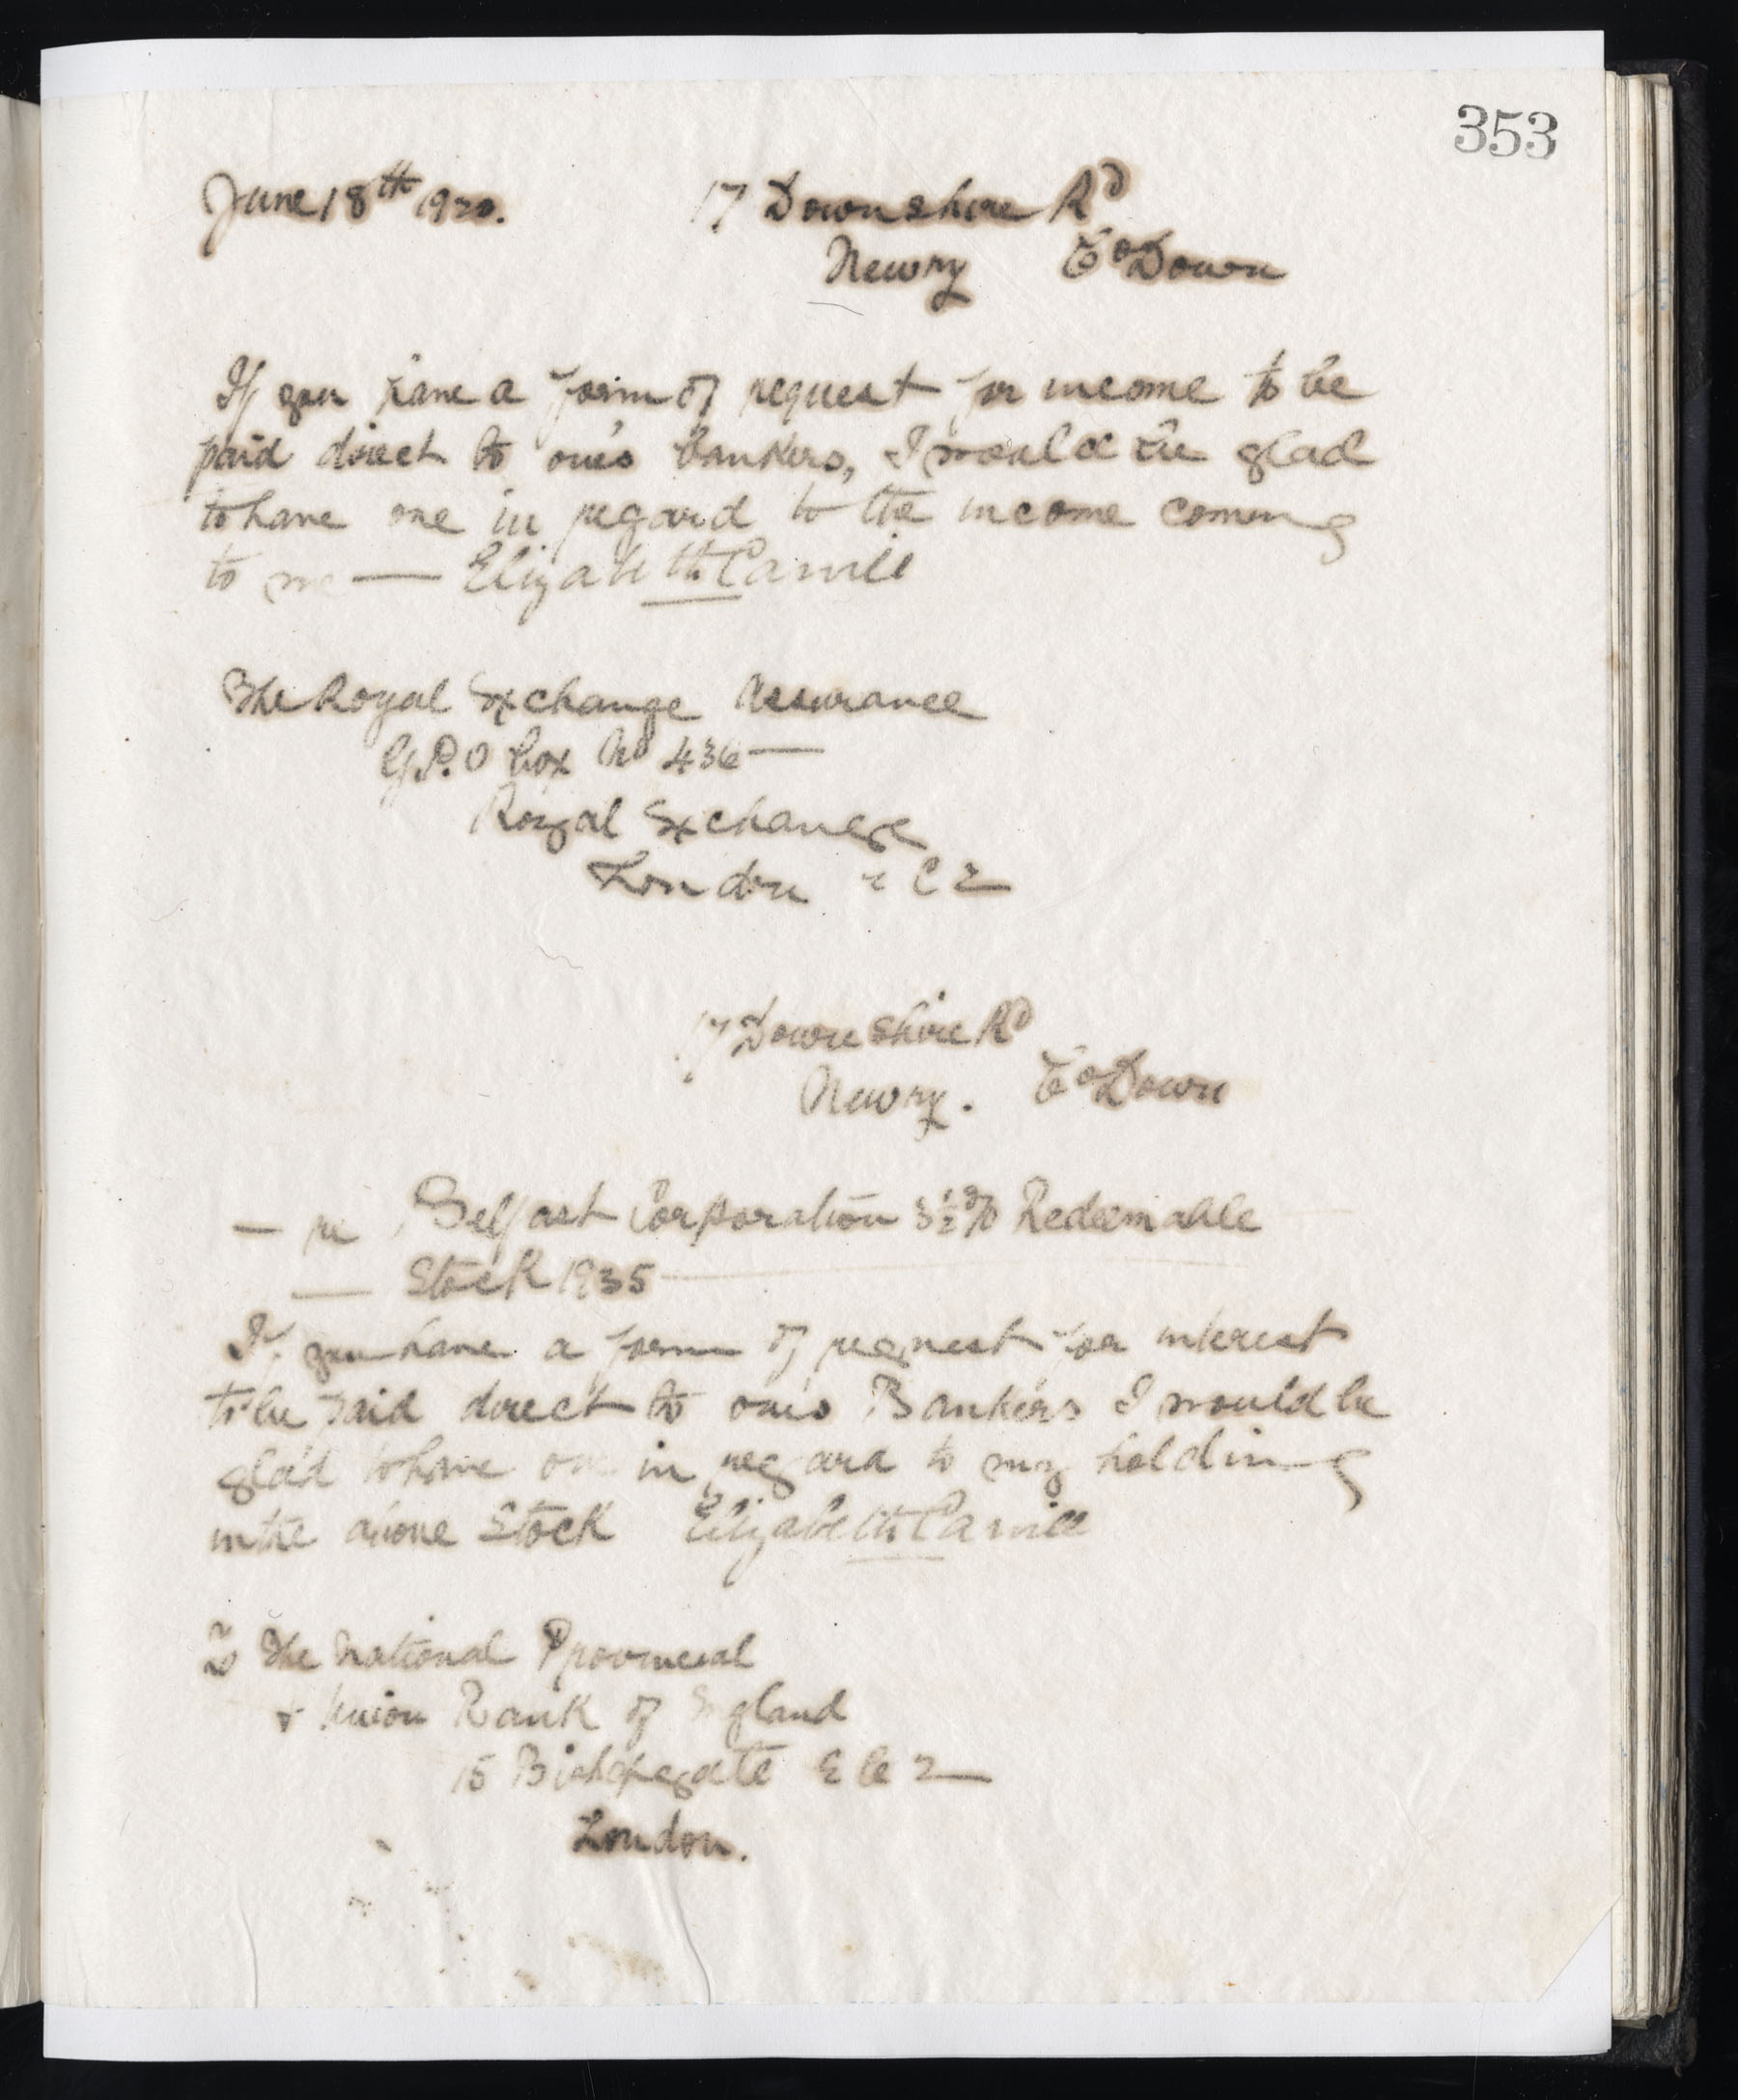 353
June 18th 1920. 17 Downshire Rd
Newry Co Down
If you have a form of request for income to be
paid direct to one's bankers, I would be glad
to have one in regard to the income coming
to me — Elizabeth Carvill
The Royal Exchange Assurance
G.P.O Box No 436 —
Royal Exchange
London E C 2
17 Downshire Rd
Newry. Co Down
— re Belfast Corporation 3½% Redeemable
— Stock 1935 —
If you have a form of request for interest
to be paid direct to one's Bankers I would be
glad to have one in regard to my holding
in the above Stock Elizabeth Carvill
To The National Provincial
& Union Bank of England
15 Bishopsgate E C 2 —
London.